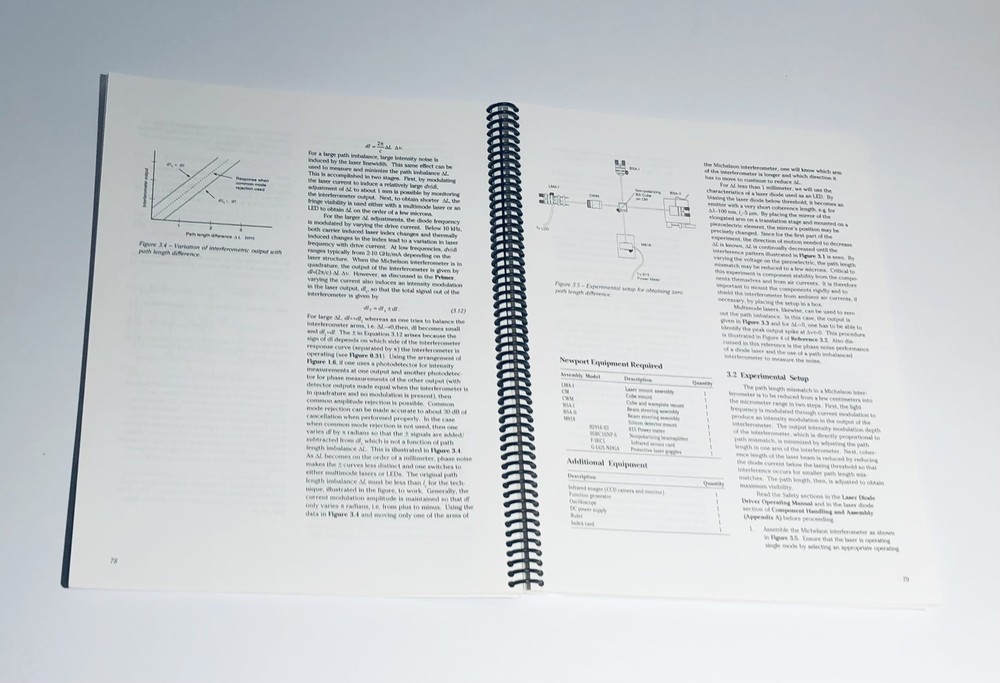 Interferometer output
dI₁ + dI
Response when
common mode
rejection used
dI₁ - dI
1
2
3
Path length difference, Δ L (cm)
Figure 3.4 – Variation of interferometric output with
path length difference.
dI = 2π/c ΔL Δν.
For a large path imbalance, large intensity noise is
induced by the laser linewidth. This same effect can be
used to measure and minimize the path imbalance ΔL.
This is accomplished in two stages. First, by modulating
the laser current to induce a relatively large dν/di,
adjustment of ΔL to about 1 mm is possible by monitoring
the interferometer output. Next, to obtain shorter ΔL, the
fringe visibility is used either with a multimode laser or an
LED to obtain ΔL on the order of a few microns.
For the larger ΔL adjustments, the diode frequency
is modulated by varying the drive current. Below 10 kHz,
both carrier induced laser index changes and thermally
induced changes in the index lead to a variation in laser
frequency with drive current. At low frequencies, dν/di
ranges typically from 2-10 GHz/mA depending on the
laser structure. When the Michelson interferometer is in
quadrature, the output of the interferometer is given by
dI=(2π/c) ΔL Δν. However, as discussed in the Primer,
varying the current also induces an intensity modulation
in the laser output, dI₁, so that the total signal out of the
interferometer is given by
(3.12)
For large ΔL, dI>>dI₁ whereas as one tries to balance the
interferometer arms, i.e. ΔL→0,then, dI becomes small
and dI₁>dI. The ± in Equation 3.12 arises because the
sign of dI depends on which side of the interferometer
response curve (separated by π) the interferometer is
operating (see Figure 0.31). Using the arrangement of
Figure 1.6, if one uses a photodetector for intensity
measurements at one output and another photodetec-
tor for phase measurements of the other output (with
detector outputs made equal when the interferometer is
in quadrature and no modulation is present), then
common amplitude rejection is possible. Common
mode rejection can be made accurate to about 30 dB of
cancellation when performed properly. In the case
when common mode rejection is not used, then one
varies dI by π radians so that the ± signals are added/
subtracted from dI₁ which is not a function of path
length imbalance ΔL. This is illustrated in Figure 3.4.
As ΔL becomes on the order of a millimeter, phase noise
makes the ± curves less distinct and one switches to
either multimode lasers or LEDs. The original path
length imbalance ΔL must be less than for the tech-
nique, illustrated in the figure, to work. Generally, the
current modulation amplitude is maintained so that dI
only varies π radians, i.e. from plus to minus. Using the
data in Figure 3.4 and moving only one of the arms of
78
BSA-I
LMA-I
CWM
Non-polarizing
BS Cube
on CM
BSA-II
To LDD
MH18
To 815
Power Meter
Figure 3.5 – Experimental setup for obtaining zero
path length difference.
Newport Equipment Required
Assembly Model Description Quantity
LMA-I Laser mount assembly 1
CM Cube mount 1
CWM Cube and waveplate mount 1
BSA-I Beam steering assembly 1
BSA-II Beam steering assembly 1
MH18 Silicon detector mount 1
815 Power meter 1
Nonpolarizing beamsplitter 1
F-IRC1 Infrared sensor card 1
Protective laser goggles 1
Additional Equipment
Description Quantity
Infrared imager (CCD camera and monitor) 1
Function generator 1
Oscilloscope 1
DC power supply 1
Ruler 1
Index card 1
the Michelson interferometer, one will know which arm
of the interferometer is longer and which direction it
has to move to continue to reduce ΔL.
For ΔL less than 1 millimeter, we will use the
characteristics of a laser diode used as an LED. By
biasing the laser diode below threshold, it becomes an
emitter with a very short coherence length, e.g. for
By placing the mirror of the
elongated arm on a translation stage and mounted on a
piezoelectric element, the mirror's position may be
precisely changed. Since for the first part of the
experiment, the direction of motion needed to decrease
ΔL is known, ΔL is continually decreased until the
interference pattern illustrated in Figure 3.1 is seen. By
varying the voltage on the piezoelectric, the path length
mismatch may be reduced to a few microns. Critical to
this experiment is component stability from the compo-
nents themselves and from air currents. It is therefore
important to mount the components rigidly and to
should the interferometer from ambient air currents, if
necessary, by placing the setup in a box.
Multimode lasers, likewise, can be used to zero
out the path imbalance. In this case, the output is
given in Figure 3.3 and for ΔL=0, one has to be able to
identify the peak output spike at Δν=0. This procedure
is illustrated in Figure 4 of Reference 3.2. Also dis-
cussed in this reference is the phase noise performance
of a diode laser and the use of a path imbalanced
interferometer to measure the noise.
3.2 Experimental Setup
The path length mismatch in a Michelson inter-
ferometer is to be reduced from a few centimeters into
the micrometer range in two steps. First, the light
frequency is modulated through current modulation to
produce an intensity modulation in the output of the
interferometer. The output intensity modulation depth
of the interferometer, which is directly proportional to
path mismatch, is minimized by adjusting the path
length in one arm of the interferometer. Next, coher-
ence length of the laser beam is reduced by reducing
the diode current below the lasing threshold so that
interference occurs for smaller path length mis-
matches. The path length, then, is adjusted to obtain
maximum visibility.
Read the Safety sections in the Laser Diode
Driver Operating Manual and in the laser diode
section of Component Handling and Assembly
(Appendix A) before proceeding.
1. Assemble the Michelson interferometer as shown
in Figure 3.5. Ensure that the laser is operating
single mode by selecting an appropriate operating
79